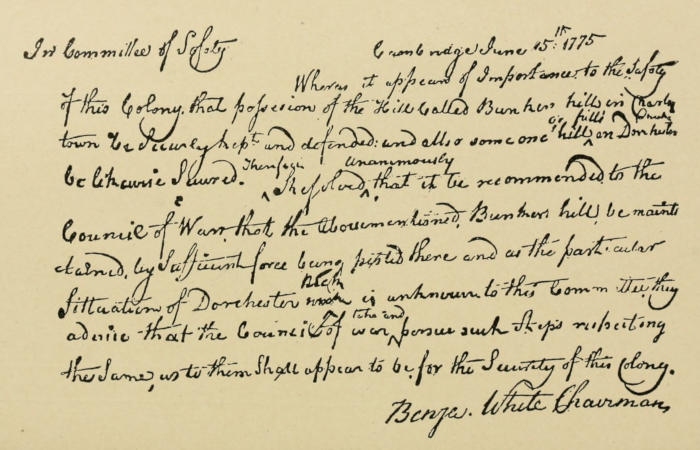 In Committee of Safety Cambridge June 15th: 1775
Wheras it appears of Importance to the Safety
of this Colony, that possession of the Hill Called Bunkers hill in Charles
town be Securely kept and defended: and also some one or hills hill on Dorchester Neck
be likewise Secured. Therefore Resolved, unanimously that it be recommended to the
Council of War, that the abovementioned, Bunkers hill, be maintained,
tained, by Sufficient force being posted there and as the particular
Situation of Dorchester Neck is unknown to this Committee, they
advise that the Council of war, take and persue such Steps respecting
the Same, as to them Shall appear to be for the Security of this Colony.
Benja. White Chairman